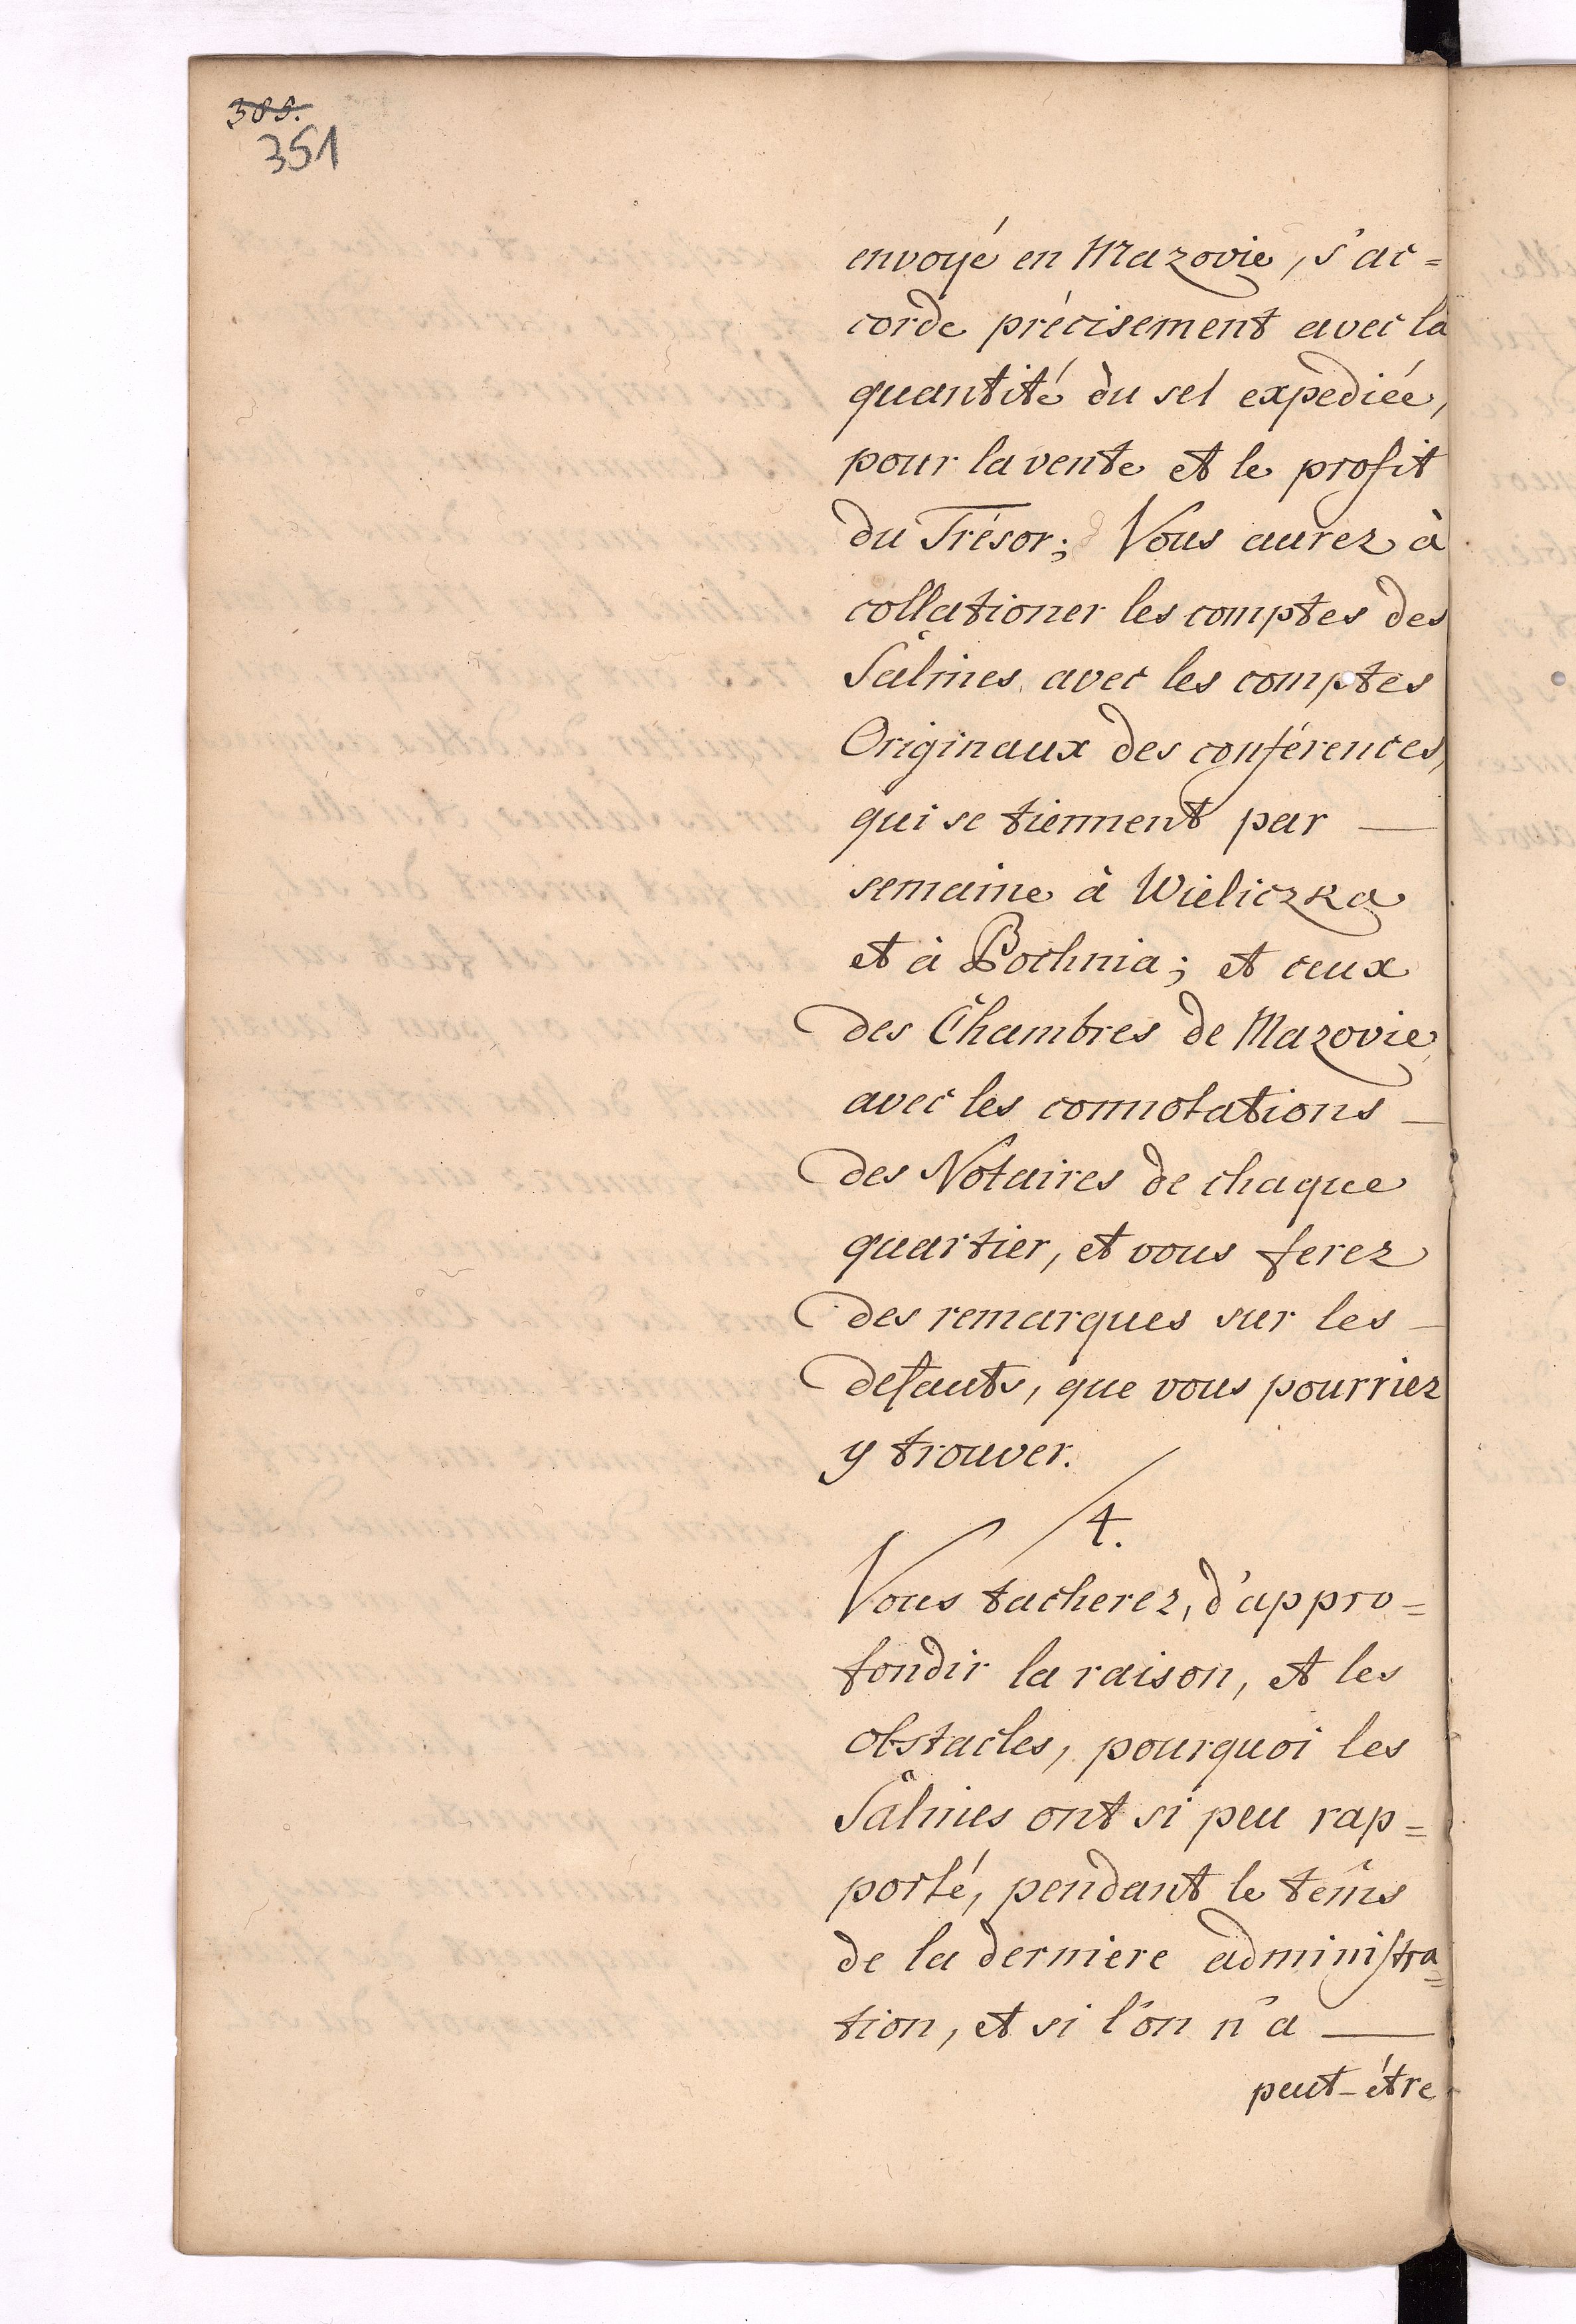 351
envoyé en Mazovie, s'ac=
corde précisement avec la
quantité du sel expediée,
pour la vente et le profit
du Trésor; Vous aurez à
collationer les comptes des
Salines avec les comptes
Originaux des conférences,
qui se tiennent par —
semaine à Wieliczka
et à Bochnia; et ceux
des Chambres de Mazovie
avec les connotations —
des Notaires de chaque
quartier, et vous ferez
des remarques sur les —
defauts, que vous pourriez
y trouver.
4.
Vous tacherez, d'appro=
fondir la raison, et les
obstacles, pourquoi les
Salines ont si peu rap=
porté, pendant le têms
de la derniere administra=
tion, et si l'on n'a —
peut-étre